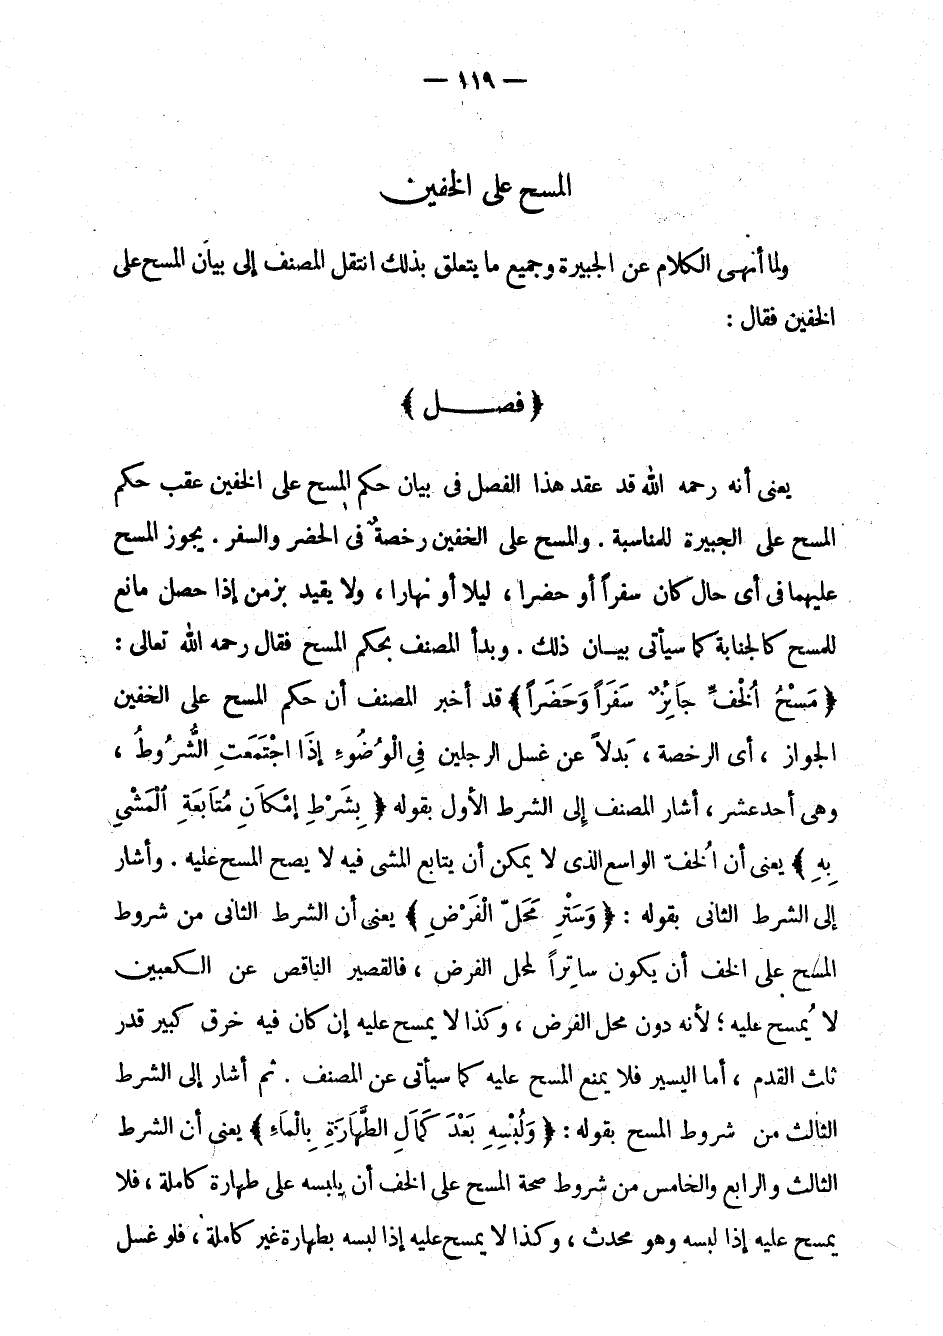 — ١١٩ —
المسح على الخفين
ولما أنهى الكلام عن الجبيرة وجميع ما يتعلق بذلك انتقل المصنف إلى بيان المسح على
الخفين فقال :
﴿ فصل ﴾
يعنى أنه رحمه الله قد عقد هذا الفصل فى بيان حكم المسح على الخفين عقب حكم
المسح على الجبيرة للمناسبة . والمسح على الخفين رخصةٌ فى الحضر والسفر . يجوز المسح
عليهما فى أى حال كان سفراً أو حضرا ، ليلا أو نهارا ، ولا يقيد بزمن إذا حصل مانع
للمسح كالجنابة كما سيأتى بيان ذلك . وبدأ المصنف بحكم المسح فقال رحمه الله تعالى :
﴿ مَسْحُ اُلْخفِّ جَائِزٌ سَفَراً وَحَضَراً ﴾ قد أخبر المصنف أن حكم المسح على الخفين
الجواز ، أى الرخصة ، بَدلاً عن غسل الرجلين فِى الْوُضُوءِ إِذَا اجْتَمَعَتِ الشُّرُوطُ ،
وهى أحد عشر ، أشار المصنف إلى الشرط الأول بقوله ﴿ بِشَرْطِ إِمْكَانِ مُتَابَعَةِ اْلمَشْىِ
بِهِ ﴾ يعنى أن اُلخفّ الواسع الذى لا يمكن أن يتابع المشى فيه لا يصح المسح عليه . وأشار
إلى الشرط الثانى بقوله : ﴿ وَسَتْرِ مَحَلِّ الْفَرْضِ ﴾ يعنى أن الشرط الثانى من شروط
المسح على الخف أن يكون ساتراً لمحل الفرض ، فالقصير الناقص عن الكعبين
لا يُمسح عليه ؛ لأنه دون محل الفرض ، وكذا لا يمسح عليه إن كان فيه خرق كبير قدر
ثلث القدم ، أما اليسير فلا يمنع المسح عليه كما سيأتى عن المصنف . ثم أشار إلى الشرط
الثالث من شروط المسح بقوله : ﴿ وَلُبْسِهِ بَعْدَ كَمَالِ الطَّهَارَةِ بِالْمَاءِ ﴾ يعنى أن الشرط
الثالث والرابع والخامس من شروط صحة المسح على الخف أن يلبسه على طهارة كاملة ، فلا
يمسح عليه إذا لبسه وهو محدث ، وكذا لا يمسح عليه إذا لبسه بطهارة غير كاملة ، فلو غسل